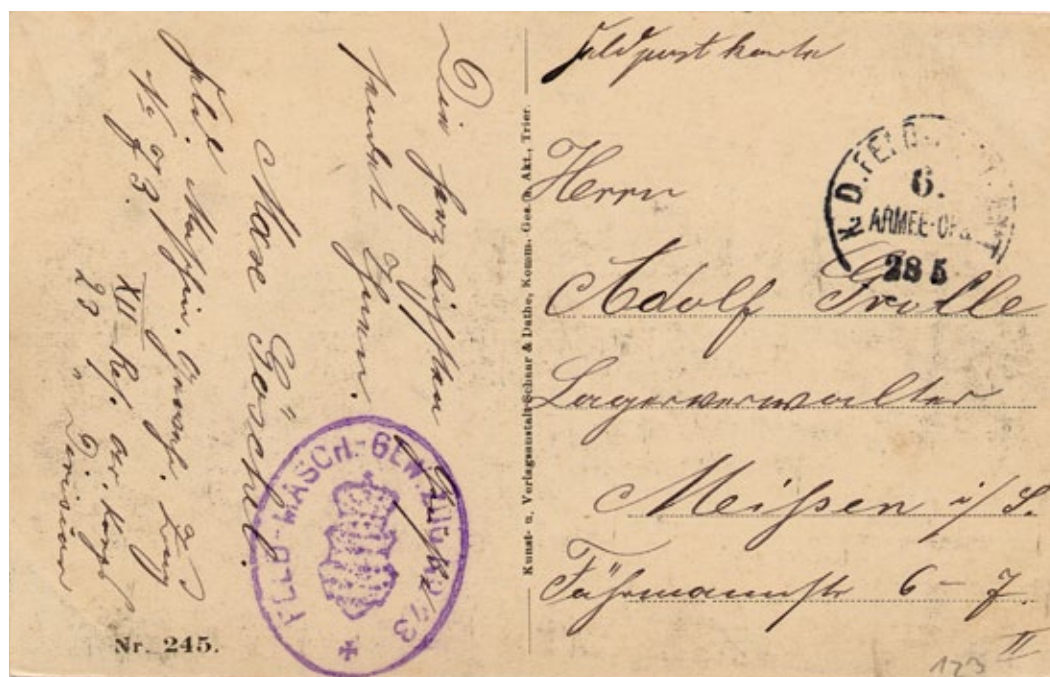 Feldpostkarte
Herrn
Adolf Grolle
Lagerverwalter
Meißen i/S.
Fährmannstr 6-7
II
123
K. D. FELD
6.
ARMEE
285
Kunst- u. Verlagsanstalt Schaar & Dathe, Komm. Ges. a. Akt., Trier.
Die herzlichsten Grüße
sendet Ihnen
Max Göschel.
Feld. Maschin. Gewehr. Zug
No 73.
XII Res. Korps
23 " Division
FELD-MASCH.-GEW. ZUG No 73
Nr. 245.